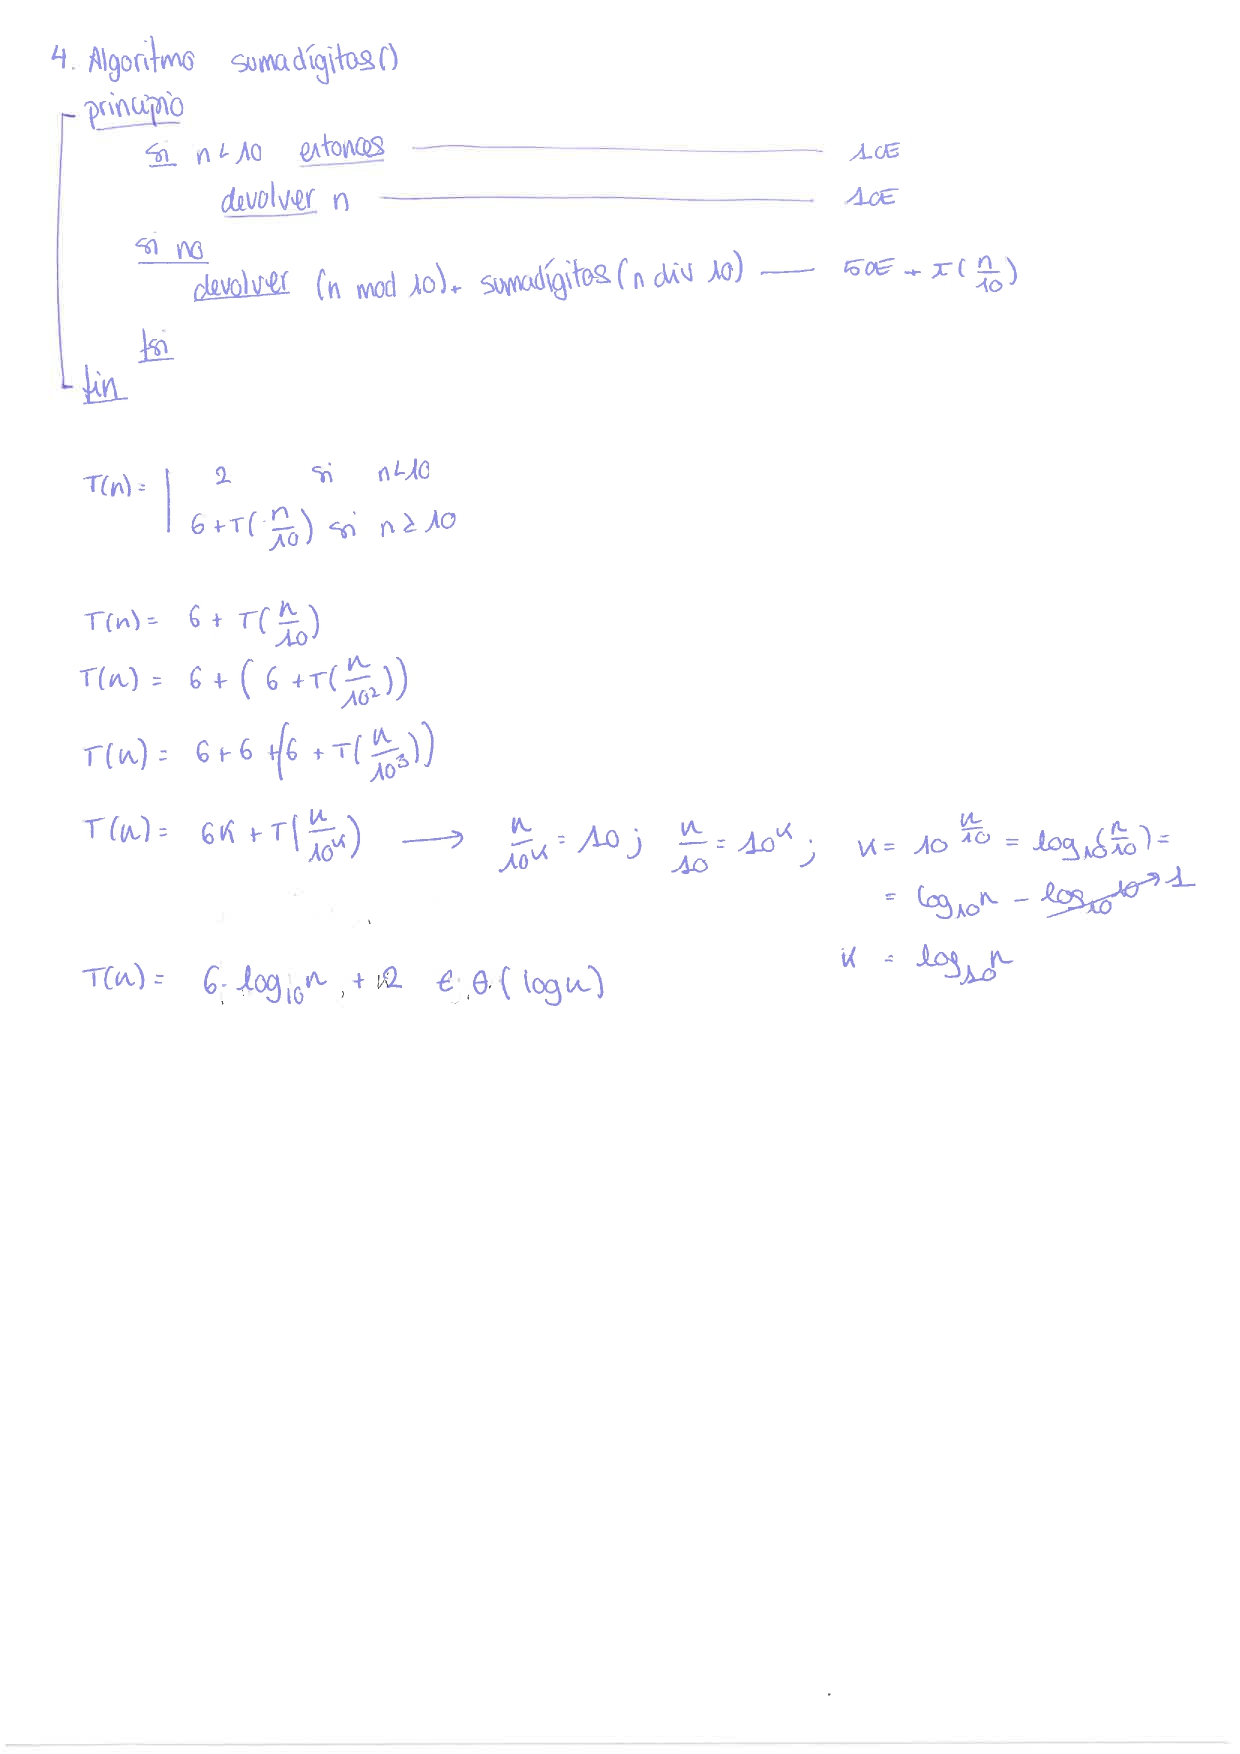 4. Algoritmo sumadígitos()
principio
si n < 10 entonces ——— 1OE
devolver n ——— 1OE
si no
devolver (n mod 10) + sumadígitos (n div 10) — 5OE + T(n/10)
fsi
fin
T(n) = | 2 si n < 10
6 + T(n/10) si n ≥ 10
T(n) = 6 + T(n/10)
T(n) = 6 + (6 + T(n/10²))
T(n) = 6 + 6 + (6 + T(n/10³))
T(n) = 6K + T(n/10^K) → n/10^K = 10; n/10 = 10^K; K = 10^(n/10) = log₁₀(n/10) =
= log₁₀n - log₁₀10 → 1
K = log₁₀n
T(n) = 6 · log₁₀n + 2 ∈ θ(log n)